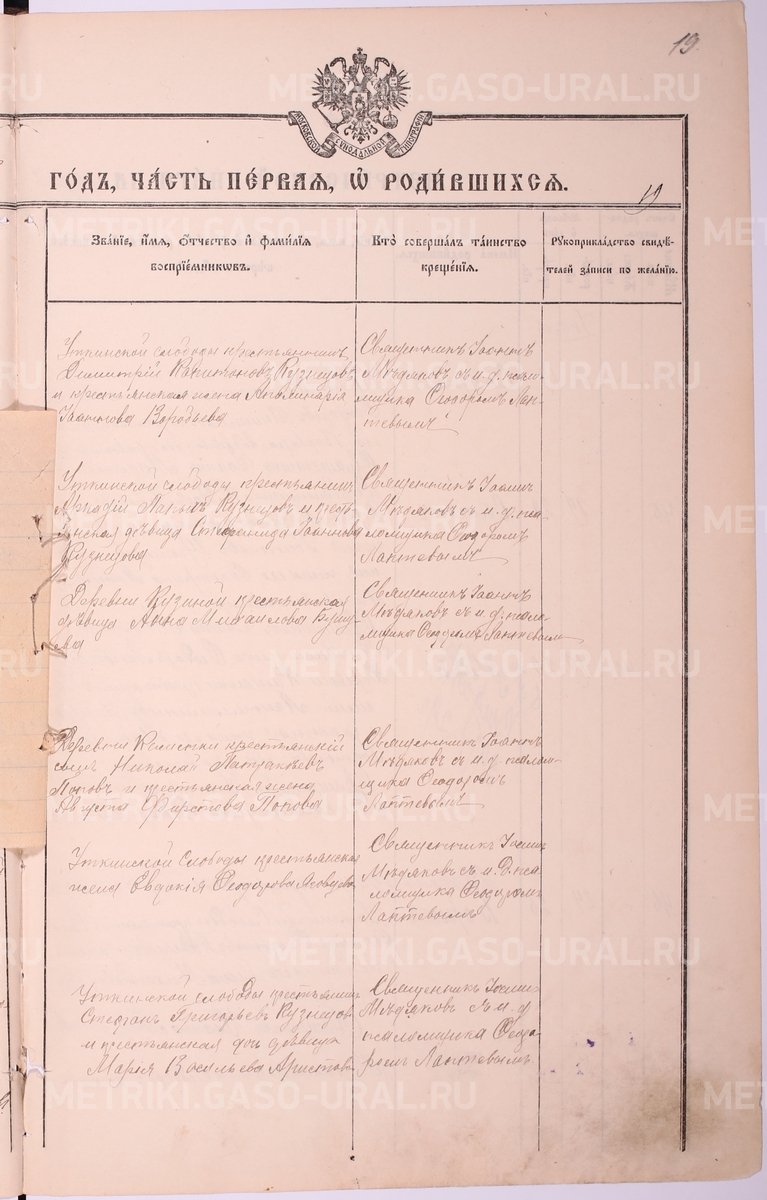 19.
МОСКОВСКОЙ СѴНОДАЛЬНОЙ ТИПОГРАФІИ
ГОДЪ, ЧАСТЬ ПЕРВАЯ, Ѡ РОДИВШИХСЯ.
19
Званіе, имя, отчество и фамилія
воспріемниковъ.
Кто совершалъ таинство
крещенія.
Рукоприкладство свидѣ-
телей записи по желанію.
Уткинской слободы крестьянинъ
Димитрій Капитоновъ Кузнецовъ
и крестьянская жена Аполинарія
Іоаннова Воробьева
Священникъ Іоаннъ
Мѣдяковъ съ и. д. псало-
мщика Ѳеодоромъ Лап-
тевымъ
Уткинской слободы крестьянинъ
Аркадій Кузнецовъ и крест
янская дѣвица Стефанида Іоаннова
Кузнецова
Священникъ Іоаннъ
Мѣдяковъ съ и. д. пса-
ломщика Ѳеодоромъ
Лаптевымъ
Деревни Кузиной крестьянская
дѣвица Анна Михаилова
Священникъ Іоаннъ
Мѣдяковъ съ и. д. псало-
мщика Ѳеодоромъ Лаптевымъ
Деревни крестьянскій
сынъ Николай
Поповъ и крестьянская жена
Августа Фирстова Попова
Священникъ Іоаннъ
Мѣдяковъ съ и. д. псалом-
щика Ѳеодоромъ
Лаптевымъ
Уткинской слободы крестьянская
жена Евдокія Ѳеодорова
Священникъ Іоаннъ
Мѣдяковъ съ и. д. пса
ломщика Ѳеодоромъ
Лаптевымъ
Уткинской слободы крестьянинъ
Стефанъ Григорьевъ Кузнецовъ
и крестьянская дѣвица
Марія Васильева Аристова
Священникъ Іоаннъ
Мѣдяковъ съ и. д
псаломщика Ѳеодо-
ромъ Лаптевымъ
METRIKI.GASO-URAL.RU